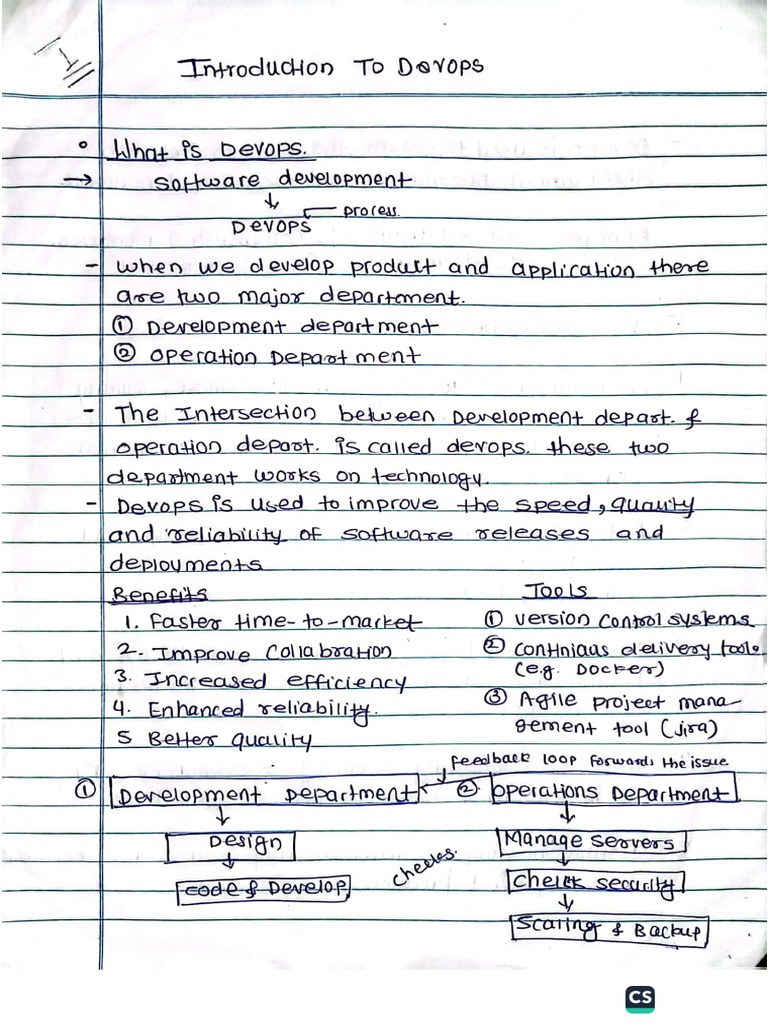 Introduction To Devops
What is Devops.
→ Software development
↓
Devops ← process.
- when we develop product and application there
are two major department.
① Development department
② Operation Department
- The Intersection between Development depart. &
operation depart. is called devops. these two
department works on technology.
- Devops is used to improve the speed, quality
and reliability of software releases and
deployments
Benefits
1. Faster time-to-market
2. Improve Collabration
3. Increased efficiency
4. Enhanced reliability.
5 Better quality
Tools
① version control systems
② continiaus delivery tools
(e.g. Docker)
③ Agile project mana-
gement tool (Jira)
feedback loop forwards the issue
① Development Department
↓
Design
↓
code & Develop
② Operations Department
↓
Manage servers
↓
Check security
↓
Scaling & Backup
CS